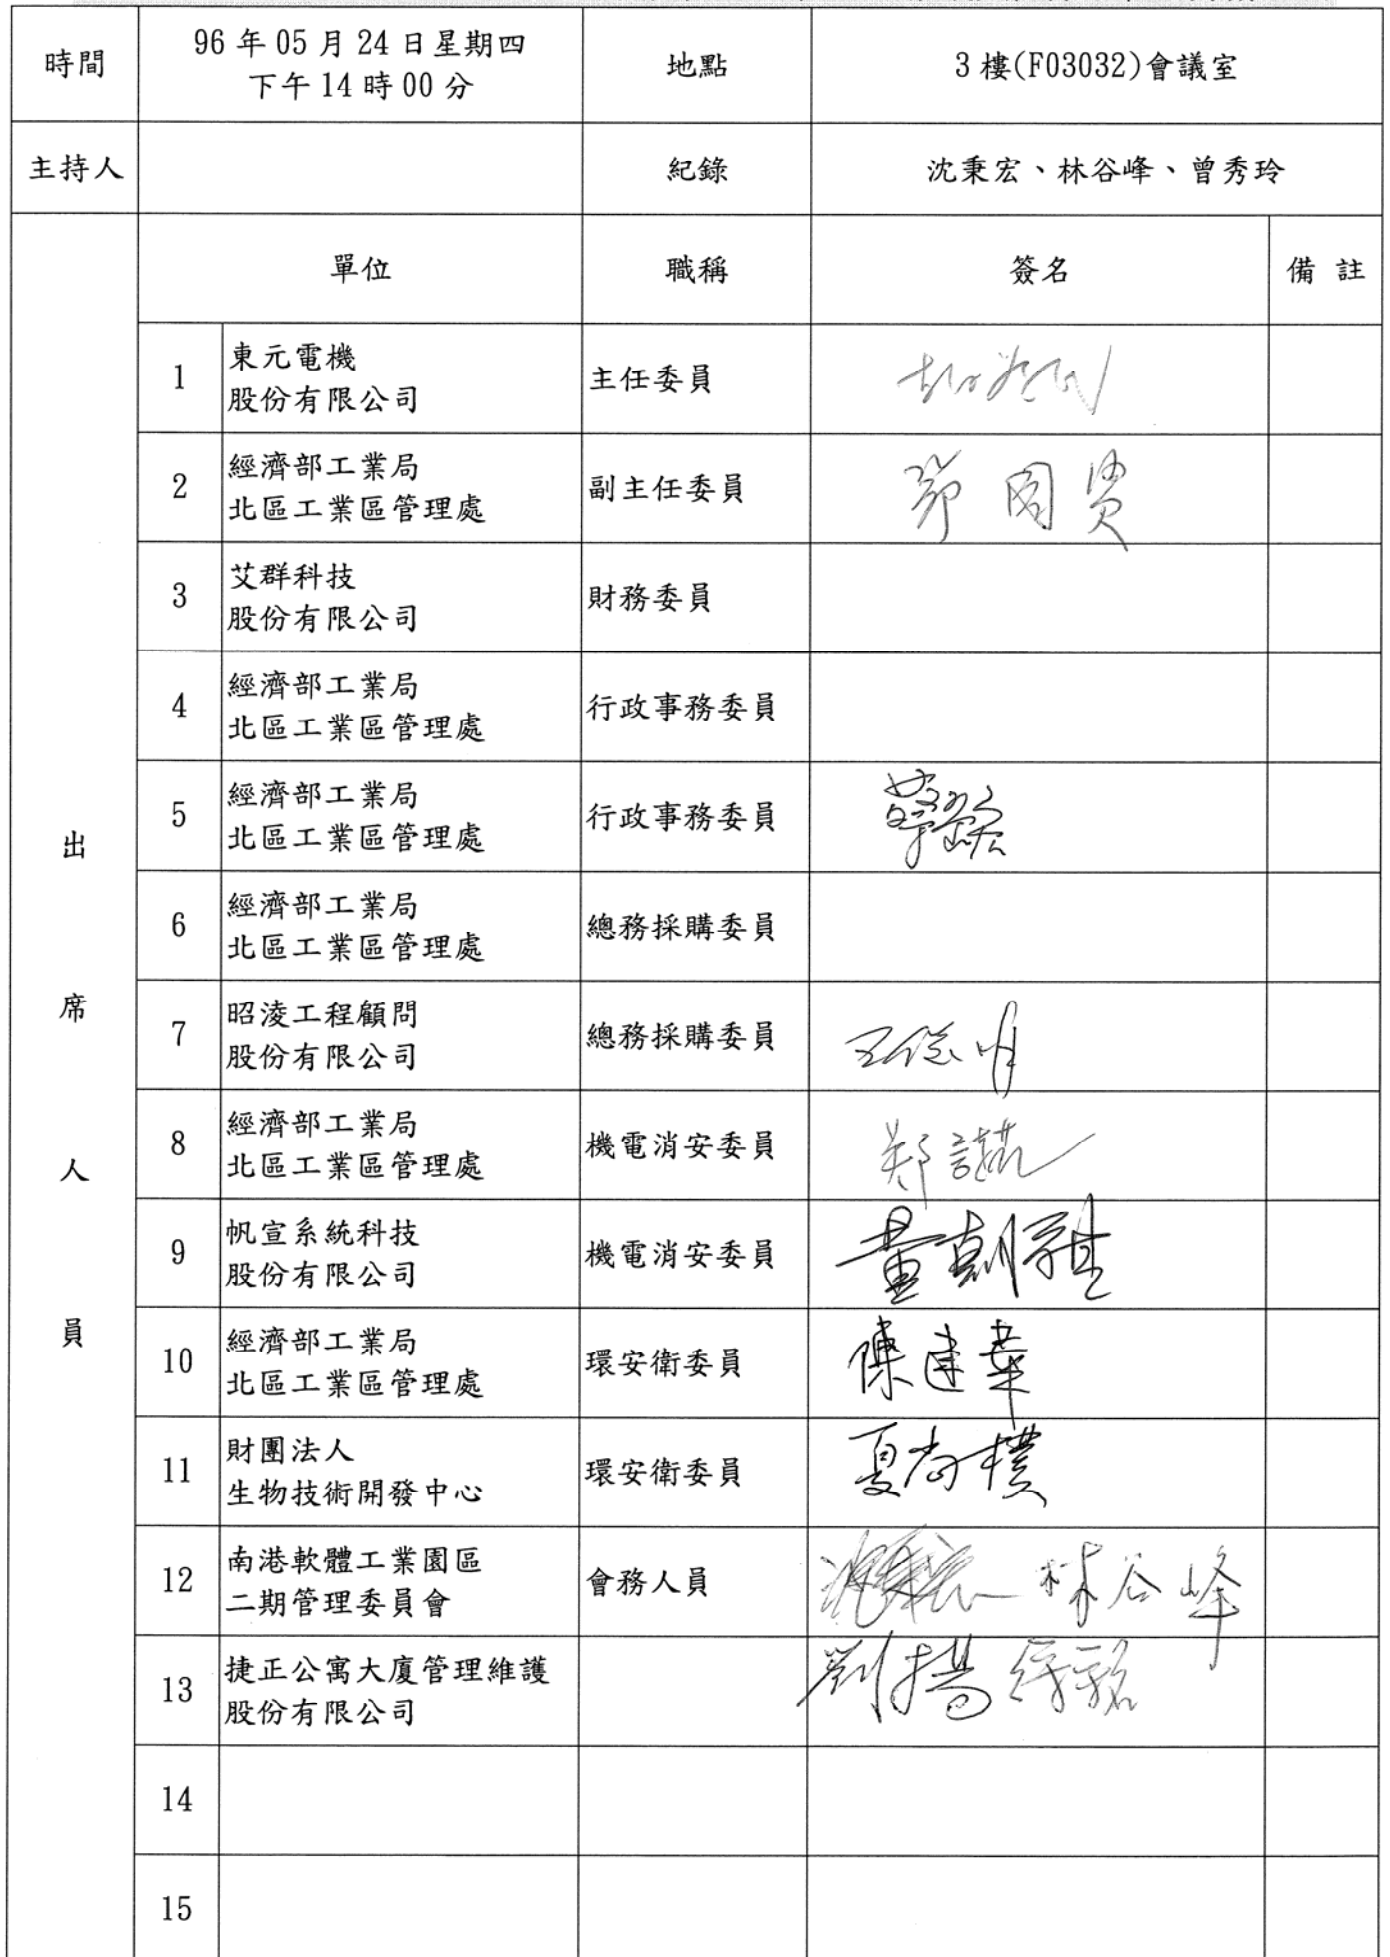 時間
96 年 05 月 24 日星期四
下午 14 時 00 分
地點
3 樓(F03032)會議室
主持人
紀錄
沈秉宏、林谷峰、曾秀玲
出席人員
單位
職稱
簽名
備 註
1
東元電機
股份有限公司
主任委員
2
經濟部工業局
北區工業區管理處
副主任委員
3
艾群科技
股份有限公司
財務委員
4
經濟部工業局
北區工業區管理處
行政事務委員
5
經濟部工業局
北區工業區管理處
行政事務委員
6
經濟部工業局
北區工業區管理處
總務採購委員
7
昭淩工程顧問
股份有限公司
總務採購委員
8
經濟部工業局
北區工業區管理處
機電消安委員
9
帆宣系統科技
股份有限公司
機電消安委員
10
經濟部工業局
北區工業區管理處
環安衛委員
陳建華
11
財團法人
生物技術開發中心
環安衛委員
夏尚樸
12
南港軟體工業園區
二期管理委員會
會務人員
沈秉宏 林谷峰
13
捷正公寓大廈管理維護
股份有限公司
14
15